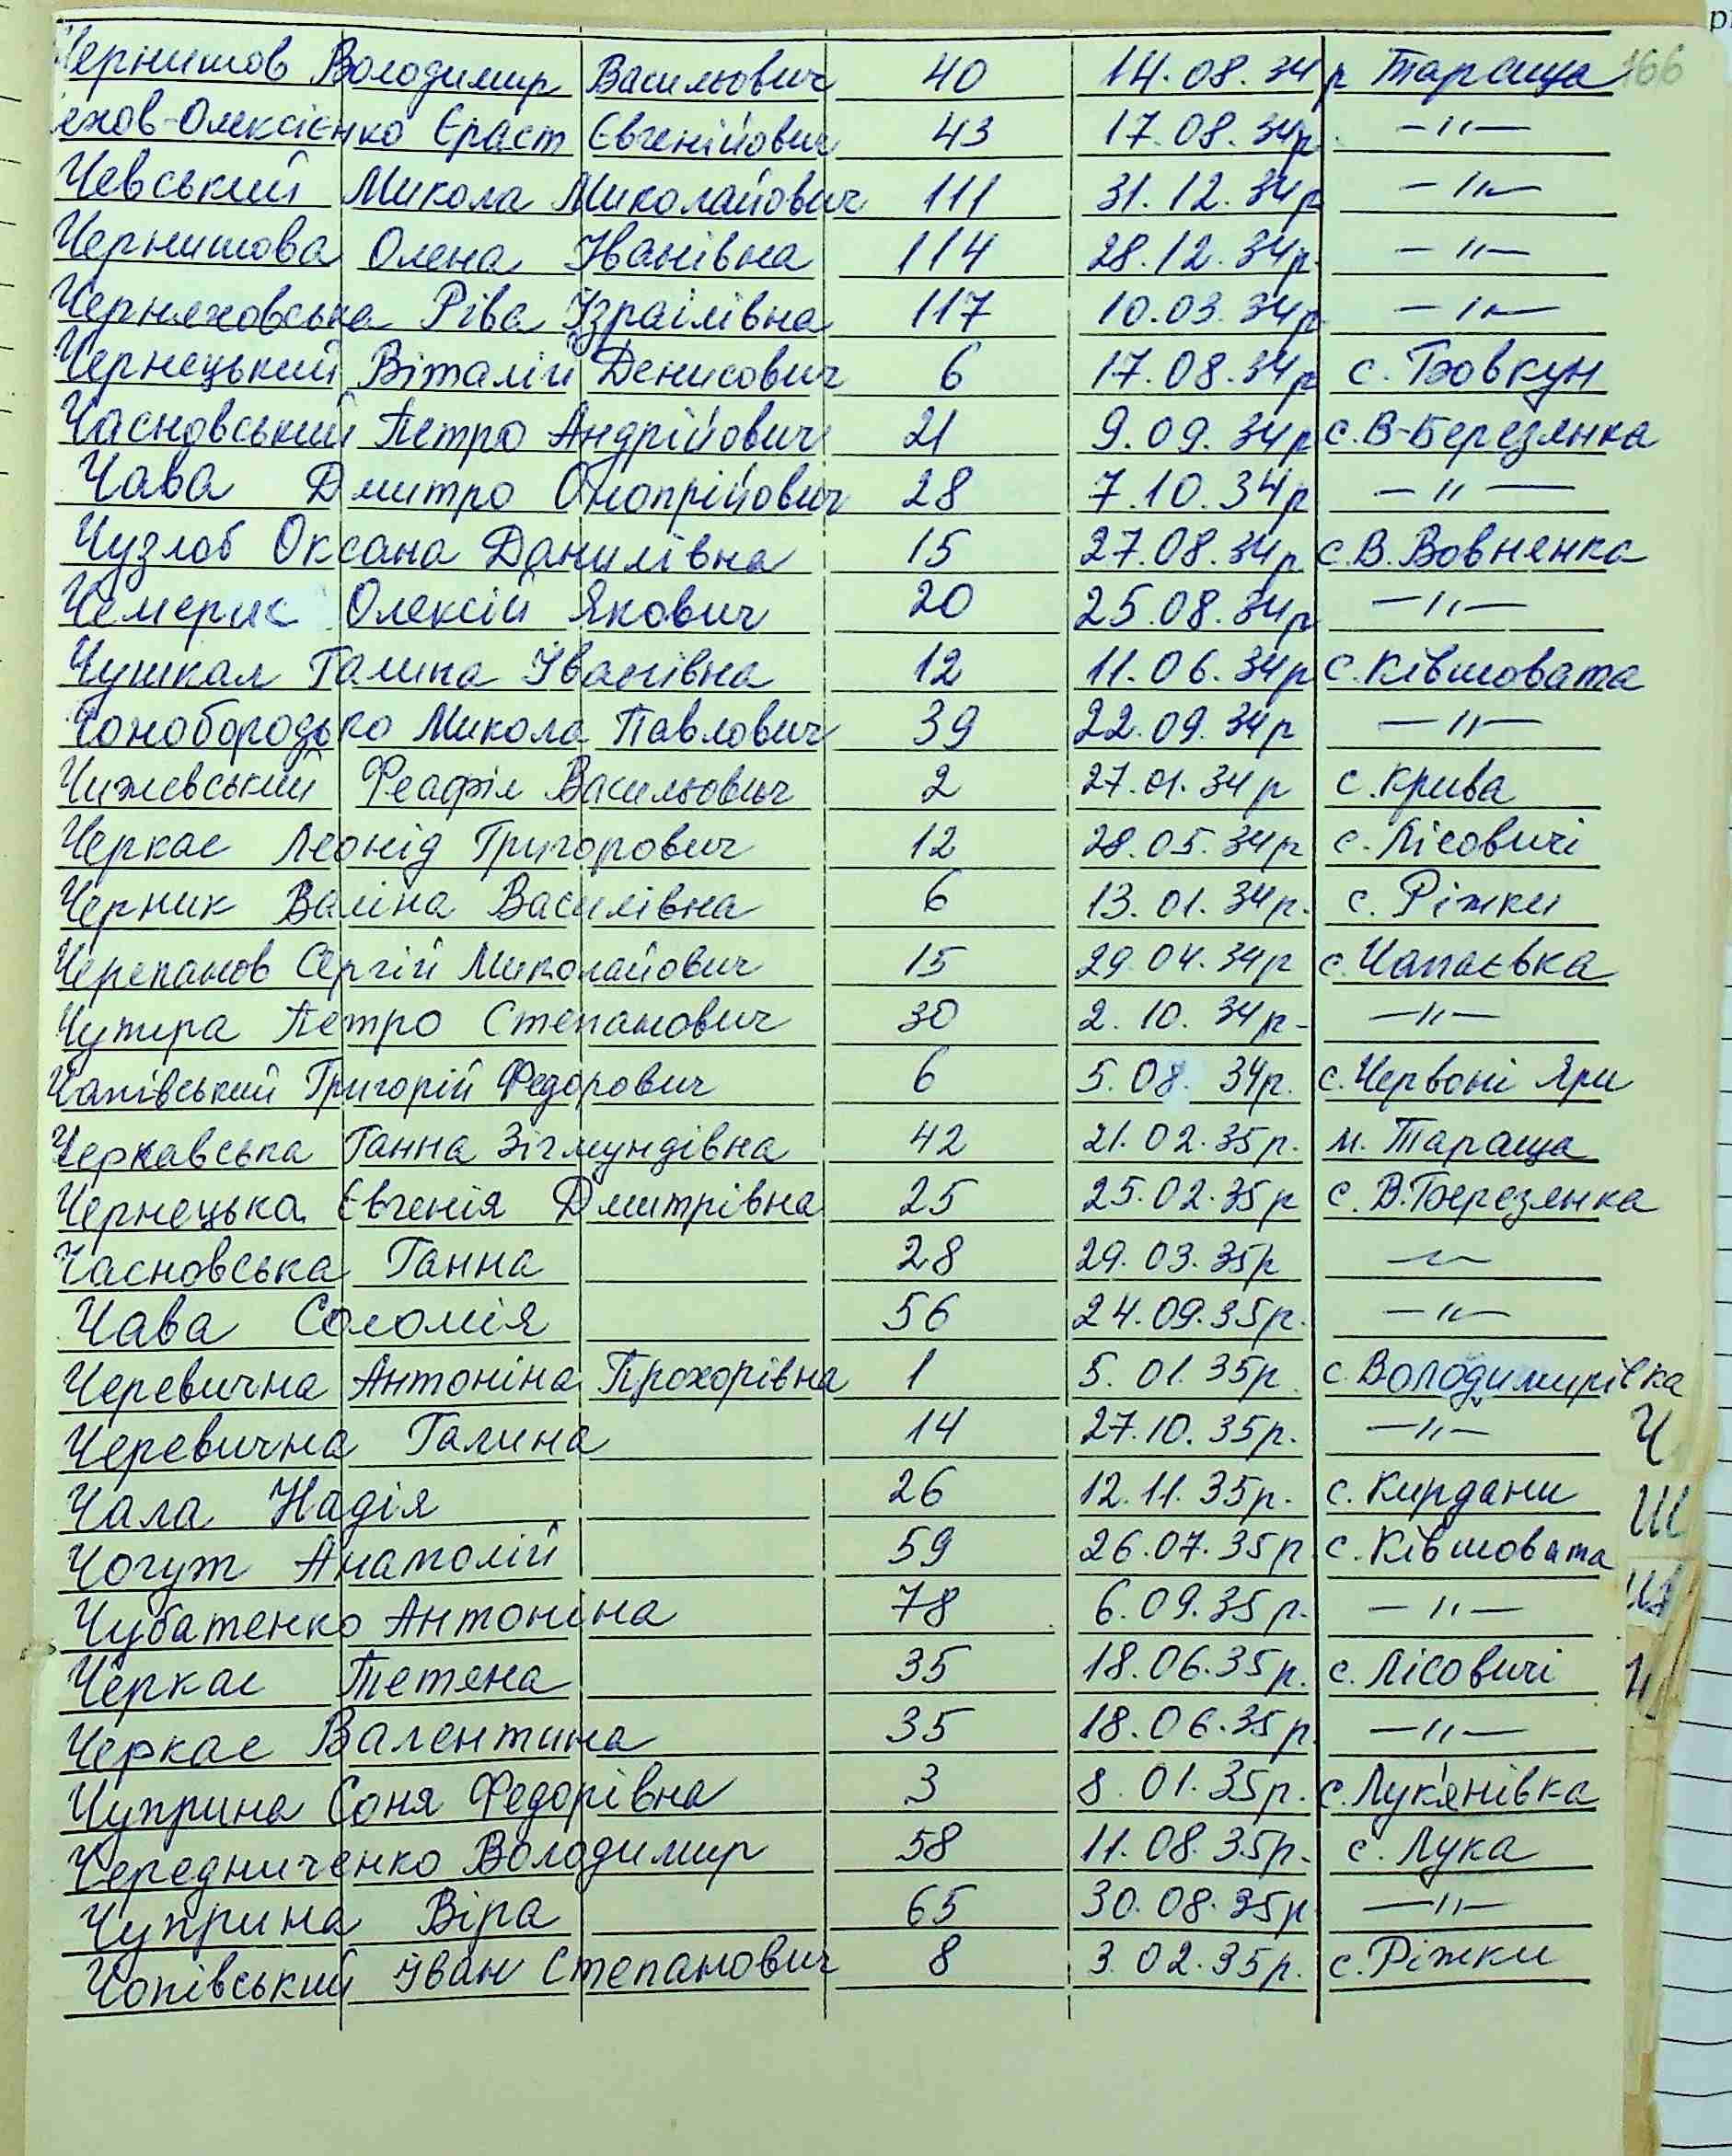 Чернишов Володимир Васильович 40 14.08.34р Тараща 166
ехов-Олексієнко Єраст Євгенійович 43 17.08.34р. —〃—
Чевський Микола Миколайович 111 31.12.34р —〃—
Чернишова Олена Іванівна 114 28.12.34р. —〃—
Черняховська Ріва Ізраілівна 117 10.03.34р —〃—
Чернецький Віталій Денисович 6 17.08.34р с. Бовкун
Часновський Петро Андрійович 21 9.09.34р с.В-Березянка
Чава Дмитро Онопрійович 28 7.10.34р —〃—
Чузлоб Оксана Данилівна 15 27.08.34р. с.В.Вовнянка
Чемерис Олексій Якович 20 25.08.34р —〃—
Чушкал Галина Іванівна 12 11.06.34р с.Ківшовата
Чонобородько Микола Павлович 39 22.09.34р —〃—
Чижевський Феафіл Васильович 2 27.01.34р с.Крива
Черкас Леонід Григорович 12 28.05.34р с.Лісовичі
Черник Валіна Василівна 6 13.01.34р. с. Ріжки
Черепанов Сергій Миколайович 15 29.04.34р с.Чапаєвка
Чутира Петро Степанович 30 2.10.34р- —〃—
Чапівський Григорій Федорович 6 5.08.34р. с.Червоні Яри
Черкавська Ганна Зігмундівна 42 21.02.35р. м. Тараща
Чернецька Євгенія Дмитрівна 25 25.02.35р с.В.Березянка
Часновська Ганна 28 29.03.35р —〃—
Чава Соломія 56 24.09.35р. —〃—
Черевична Антоніна Прохорівна 1 5.01.35р. с.Володимирівка
Черевична Галина 14 27.10.35р. —〃— Ч
Чала Надія 26 12.11.35р. с. Кирдани Ш
Чогут Анатолій 59 26.07.35р с.Ківшовата
Чубатенко Антоніна 78 6.09.35р. —〃—
Черкас Тетяна 35 18.06.35р. с.Лісовичі
Черкас Валентина 35 18.06.35р. —〃—
Чуприна Соня Федорівна 3 8.01.35р. с.Лук'янівка
Чередниченко Володимир 58 11.08.35р. с. Лука
Чуприна Віра 65 30.08.35р —〃—
Чопівський Іван Степанович 8 3.02.35р. с.Ріжки